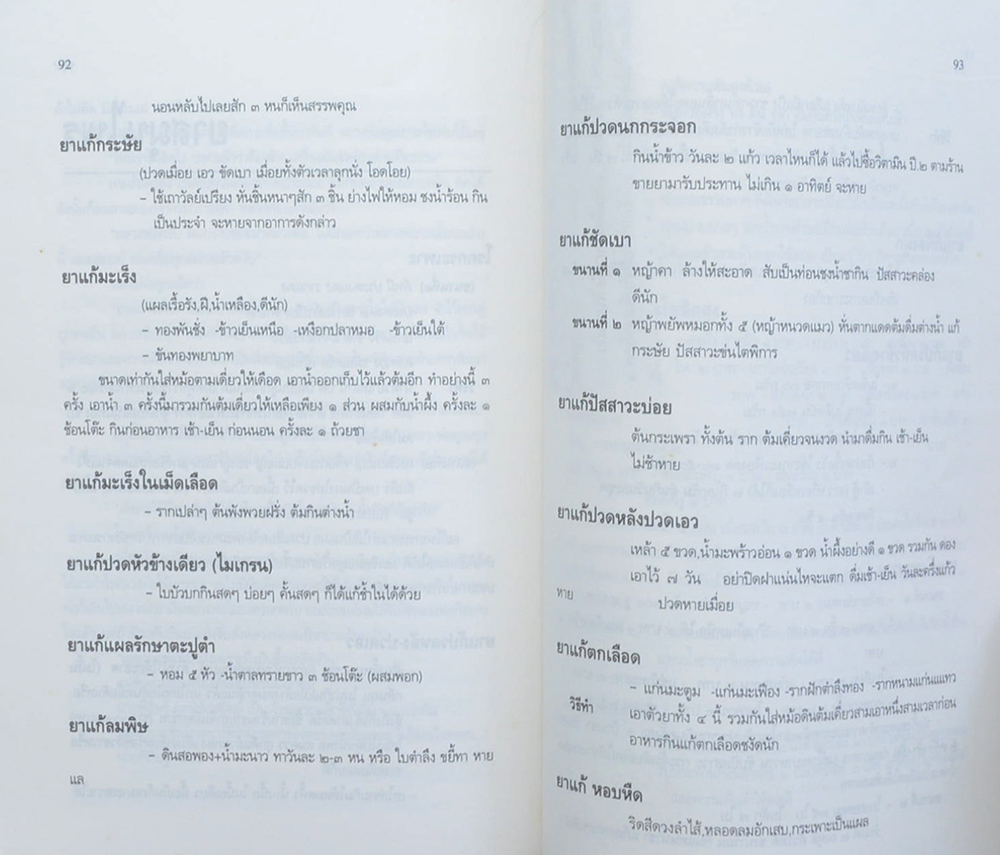 92
นอนหลับไปเลยสัก ๓ หนก็เห็นสรรพคุณ
ยาแก้กระษัย
(ปวดเมื่อย เอว ขัดเบา เมื่อยทั้งตัวเวลาลุกนั่ง โอดโอย)
– ใช้เถาวัลย์เปรียง หั่นชิ้นหนาๆสัก ๓ ชิ้น ย่างไฟให้หอม ชงน้ำร้อน กิน
เป็นประจำ จะหายจากอาการดังกล่าว
ยาแก้มะเร็ง
(แผลเรื้อรัง,ฝี,น้ำเหลือง,ดีนัก)
– ทองพันชั่ง -ข้าวเย็นเหนือ -เหงือกปลาหมอ -ข้าวเย็นใต้
– ขันทองพยาบาท
ขนาดเท่ากันใส่หม้อตามเดี่ยวให้เดือด เอาน้ำออกเก็บไว้แล้วต้มอีก ทำอย่างนี้ ๓
ครั้ง เอาน้ำ ๓ ครั้งนี้มารวมกันต้มเดี่ยวให้เหลือเพียง ๑ ส่วน ผสมกับน้ำผึ้ง ครั้งละ ๑
ช้อนโต๊ะ กินก่อนอาหาร เช้า-เย็น ก่อนนอน ครั้งละ ๑ ถ้วยชา
ยาแก้มะเร็งในเม็ดเลือด
– รากเปล่าๆ ต้นพังพวยฝรั่ง ต้มกินต่างน้ำ
ยาแก้ปวดหัวข้างเดียว (ไมเกรน)
– ใบบัวบกกินสดๆ บ่อยๆ คั้นสดๆ ก็ได้แก้ช้ำในได้ด้วย
ยาแก้แผลรักษาตะปูตำ
– หอม ๕ หัว -น้ำตาลทรายขาว ๓ ช้อนโต๊ะ (ผสมพอก)
ยาแก้ลมพิษ
– ดินสอพอง+น้ำมะนาว ทาวันละ ๒-๓ หน หรือ ใบตำลึง ขยี้ทา หาย
แล
93
ยาแก้ปวดนกกระจอก
กินน้ำข้าว วันละ ๒ แก้ว เวลาไหนก็ได้ แล้วไปซื้อวิตามิน ปี.๒ ตามร้าน
ขายยามารับประทาน ไม่เกิน ๑ อาทิตย์ จะหาย
ยาแก้ขัดเบา
ขนานที่ ๑ หญ้าคา ล้างให้สะอาด สับเป็นท่อนชงน้ำชากิน ปัสสาวะคล่อง
ดีนัก
ขนานที่ ๒ หญ้าพยัพหมอกทั้ง ๕ (หญ้าหนวดแมว) หั่นตากแดดต้มดื่มต่างน้ำ แก้
กระษัย ปัสสาวะข่นไตพิการ
ยาแก้ปัสสาวะบ่อย
ต้นกระเพรา ทั้งต้น ราก ต้มเคี่ยวจนงวด นำมาดื่มกิน เช้า-เย็น
ไม่ช้าหาย
ยาแก้ปวดหลังปวดเอว
เหล้า ๕ ขวด,น้ำมะพร้าวอ่อน ๑ ขวด น้ำผึ้งอย่างดี ๑ ขวด รวมกัน ดอง
เอาไว้ ๗ วัน อย่าปิดฝาแน่นไหจะแตก ดื่มเช้า-เย็น วันละครึ่งแก้ว
หาย ปวดหายเมื่อย
ยาแก้ตกเลือด
– แก่นมะตูม -แก่นมะเฟือง -รากฝักตำลึงทอง -รากหนามแก่นแแทว
วิธีทำ เอาตัวยาทั้ง ๔ นี้ รวมกันใส่หม้อดินต้มเคี่ยวสามเอาหนึ่งสามเวลาก่อน
อาหารกินแก้ตกเลือดชงัดนัก
ยาแก้ หอบหืด
ริดสีดวงลำไส้,หลอดลมอักเสบ,กระเพาะเป็นแผล